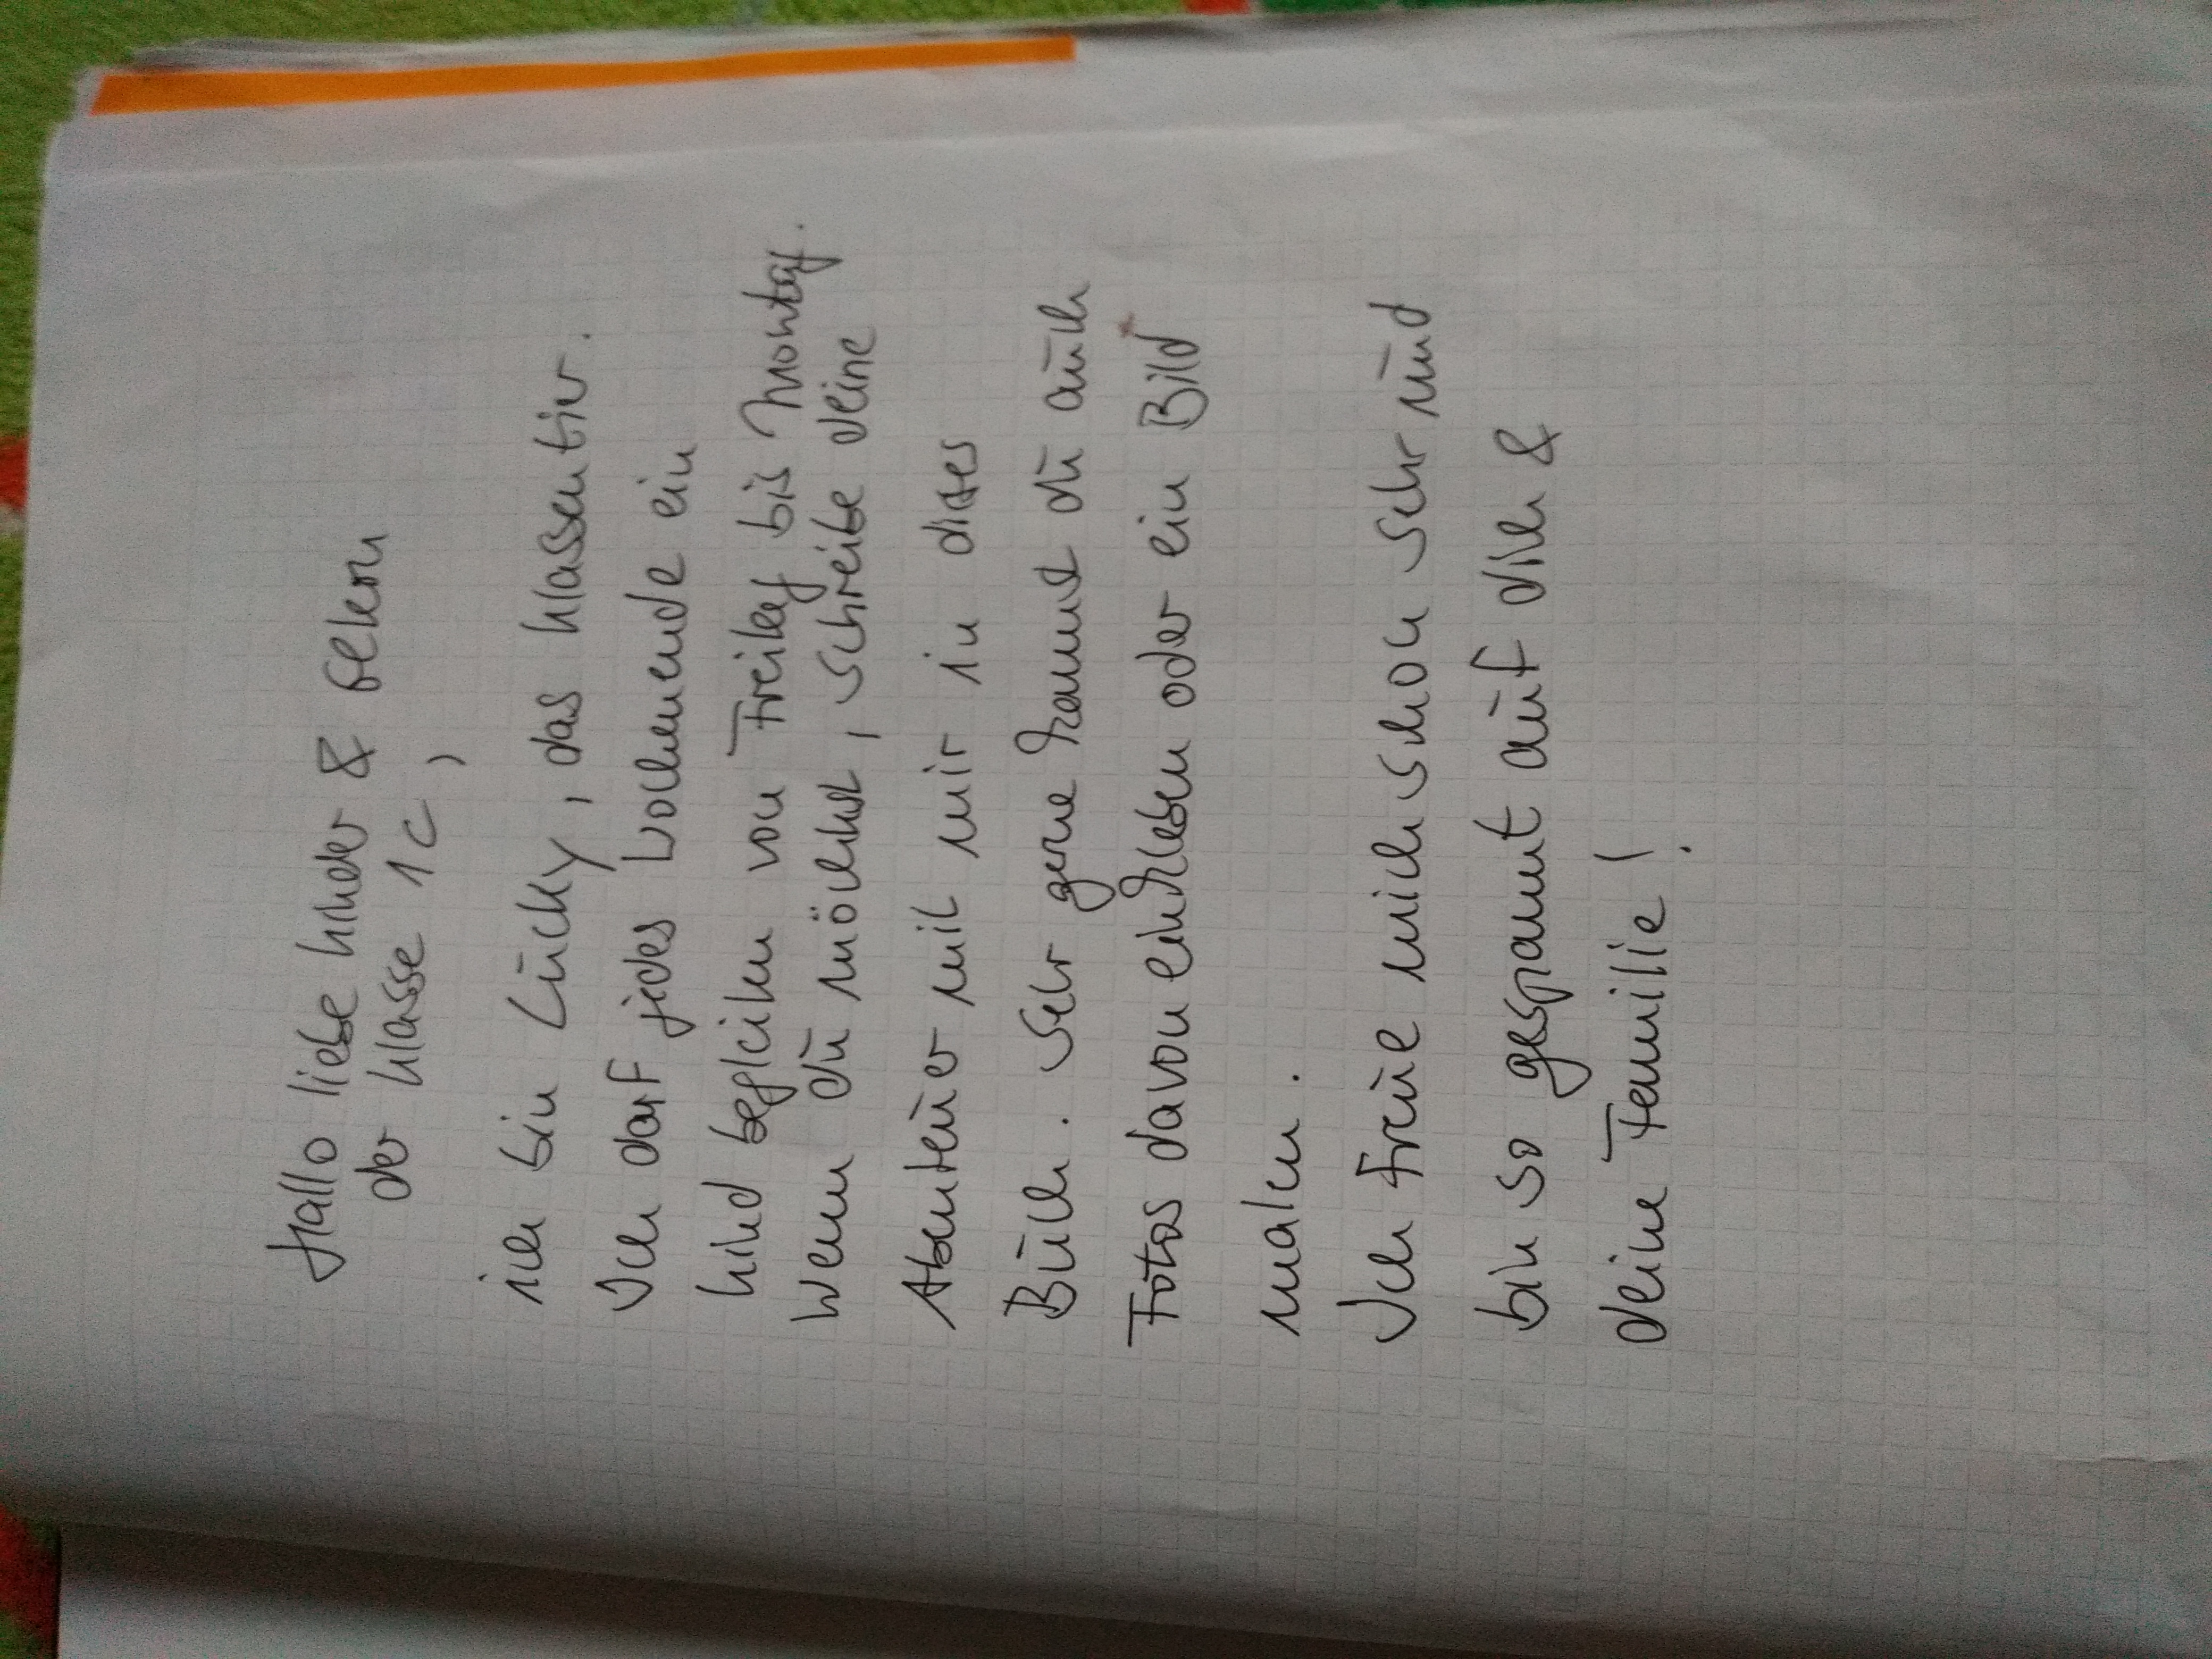 Hallo liebe Kinder & Eltern
der Klasse 1c,
ich bin Lucky, das Klassentier.
Ich darf jedes Wochenende ein
Kind begleiten von Freitag bis Montag.
Wenn du möchtest, schreibe deine
Abenteuer mit mir in dieses
Buch. Sehr gerne kannst du auch
Fotos davon einkleben oder ein Bild
malen.
Ich freue mich schon sehr und
bin so gespannt auf dich &
deine Familie!